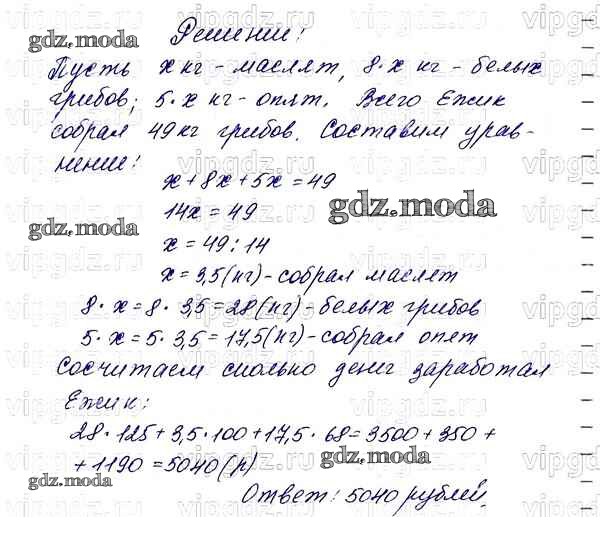 Решение:
Пусть x кг - маслят, 8·x кг - белых
грибов; 5·x кг - опят. Всего Ежик
собрал 49 кг грибов. Составим урав-
нение:
x + 8x + 5x = 49
14x = 49
x = 49 : 14
x = 3,5 (кг) - собрал маслят
8·x = 8·3,5 = 28 (кг) - белых грибов
5·x = 5·3,5 = 17,5 (кг) - собрал опят
Сосчитаем сколько денег заработал
Ежик:
28·125 + 3,5·100 + 17,5·68 = 3500 + 350 +
+ 1190 = 5040 (р)
Ответ: 5040 рублей.
gdz.moda
gdz.moda
gdz.moda
gdz.moda
gdz.moda
vipgdz.ru